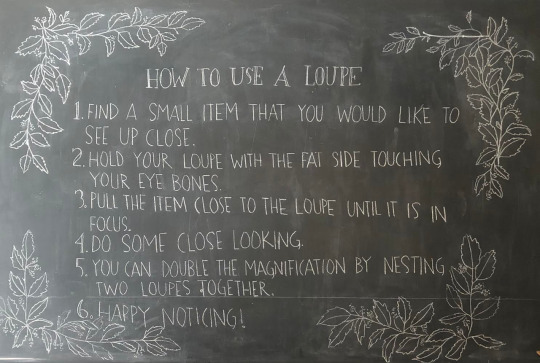 HOW TO USE A LOUPE
1. FIND A SMALL ITEM THAT YOU WOULD LIKE TO
SEE UP CLOSE.
2. HOLD YOUR LOUPE WITH THE FAT SIDE TOUCHING
YOUR EYE BONES.
3. PULL THE ITEM CLOSE TO THE LOUPE UNTIL IT IS IN
FOCUS.
4. DO SOME CLOSE LOOKING.
5. YOU CAN DOUBLE THE MAGNIFICATION BY NESTING
TWO LOUPES TOGETHER.
6. HAPPY NOTICING!